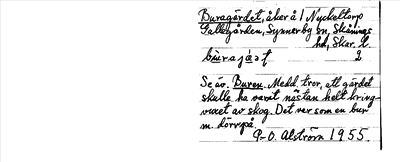 Buragärdet, åker å 1 Nyckeltorp
Gallegården, Synnerby sn, Skånings
hd, Skar. l.
bùrajáʂt 2
Se äv. Buren. Medd. tror, att gärdet
skulle ha varit nästan helt kring-
vuxet av skog. Det ver som en bur
m. dörr på.
P-O. Alström 1955.